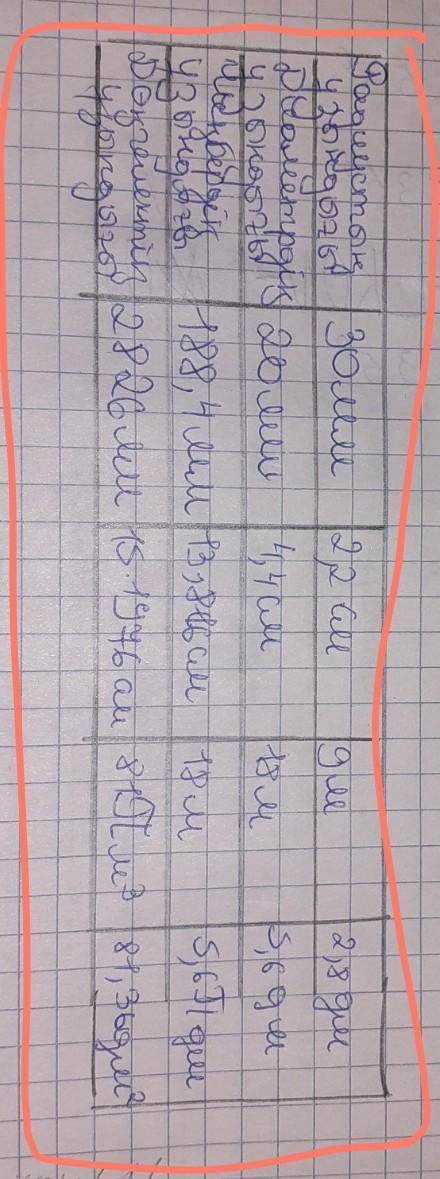 Радиустың ұзындығы 30 мм 2,2 см 9 м 2,8 дм
Диаметрдің ұзындығы 20 мм 4,4 см 18 м 5,6 дм
Шеңбердің ұзындығы 188,4 мм 13,816 см 18 м 5,6π дм
Дөңгелектің ұзындығы 2826 мм 15.1976 см 81π м³ 81,3 дм²